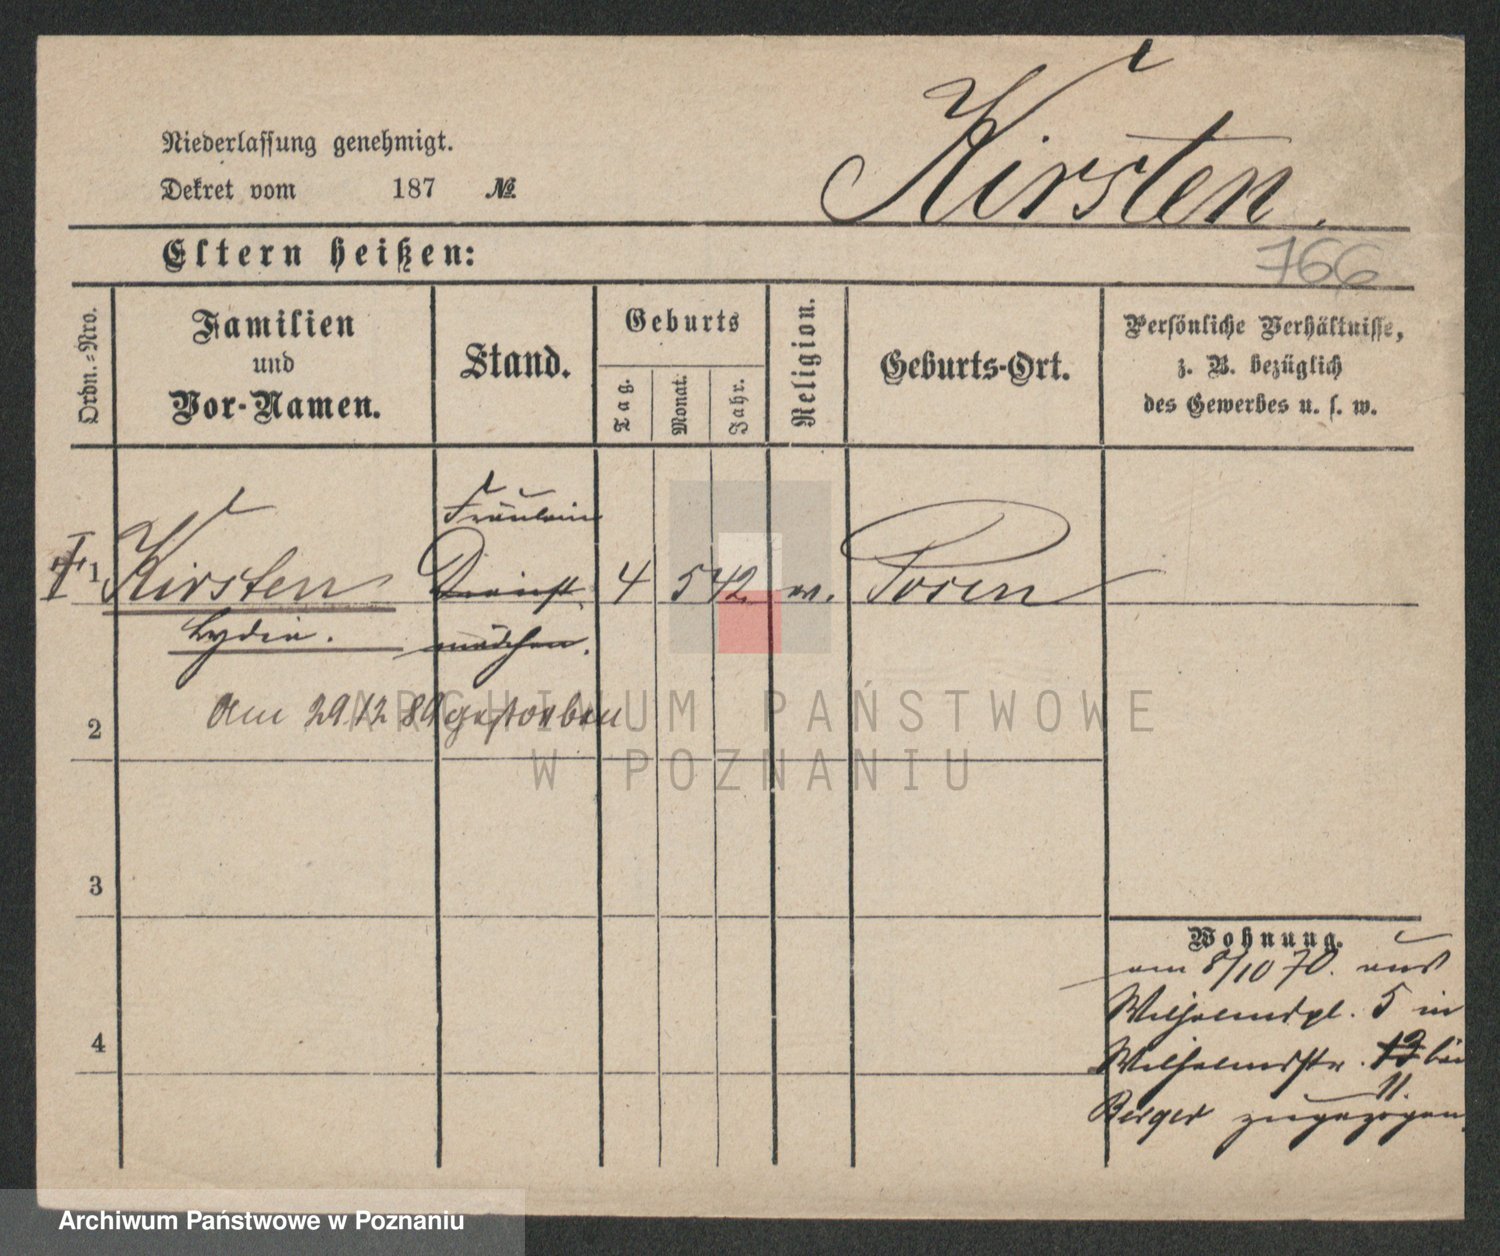 Kirsten.
Niederlassung genehmigt.
Dekret vom 187 №
Eltern heißen:
766
Ordn.=Nro.
Familien
und
Vor-Namen.
Stand.
Geburts
Tag.
Monat.
Jahr.
Religion.
Geburts-Ort.
Persönliche Verhältnisse,
z. B. bezüglich
des Gewerbes u. s. w.
Fräulein
1 Kirsten Dienst 4 5 42 Posen
Lydia. mädchen.
Am 29 12 89 gestorben
2
3
4
Wohnung.
am 8/10 70. aus
Wilhelmspl. 5 in
Wilhelmsstr.
11.
Berger zugezogen.
ARCHIWUM PAŃSTWOWE
W POZNANIU
Archiwum Państwowe w Poznaniu